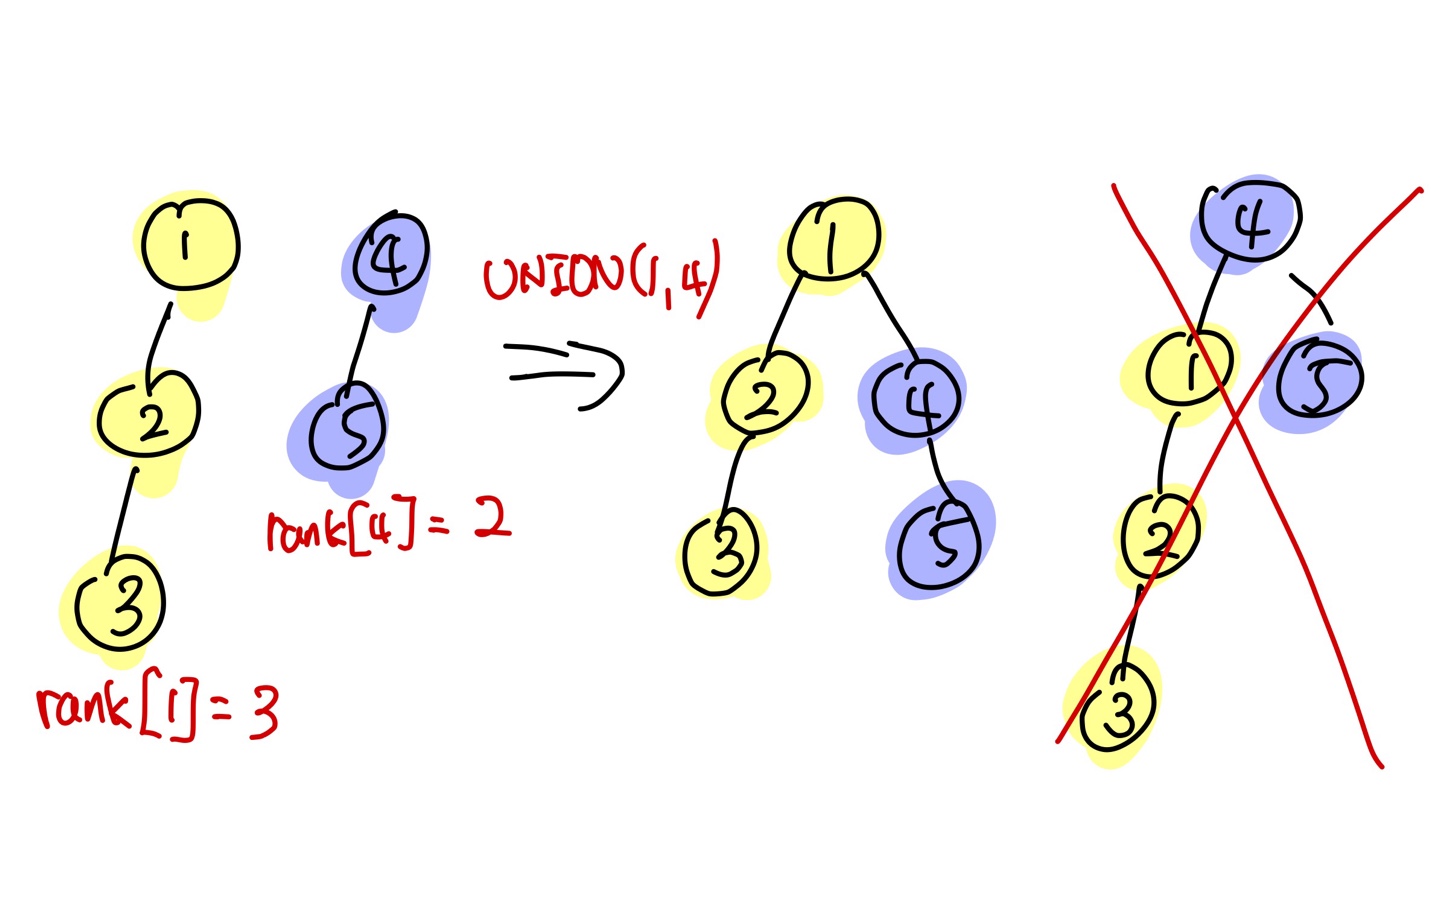 1
2
3
rank[1]=3
4
5
rank[4]=2
UNION(1,4)
1
2
4
3
5
4
1
5
2
3